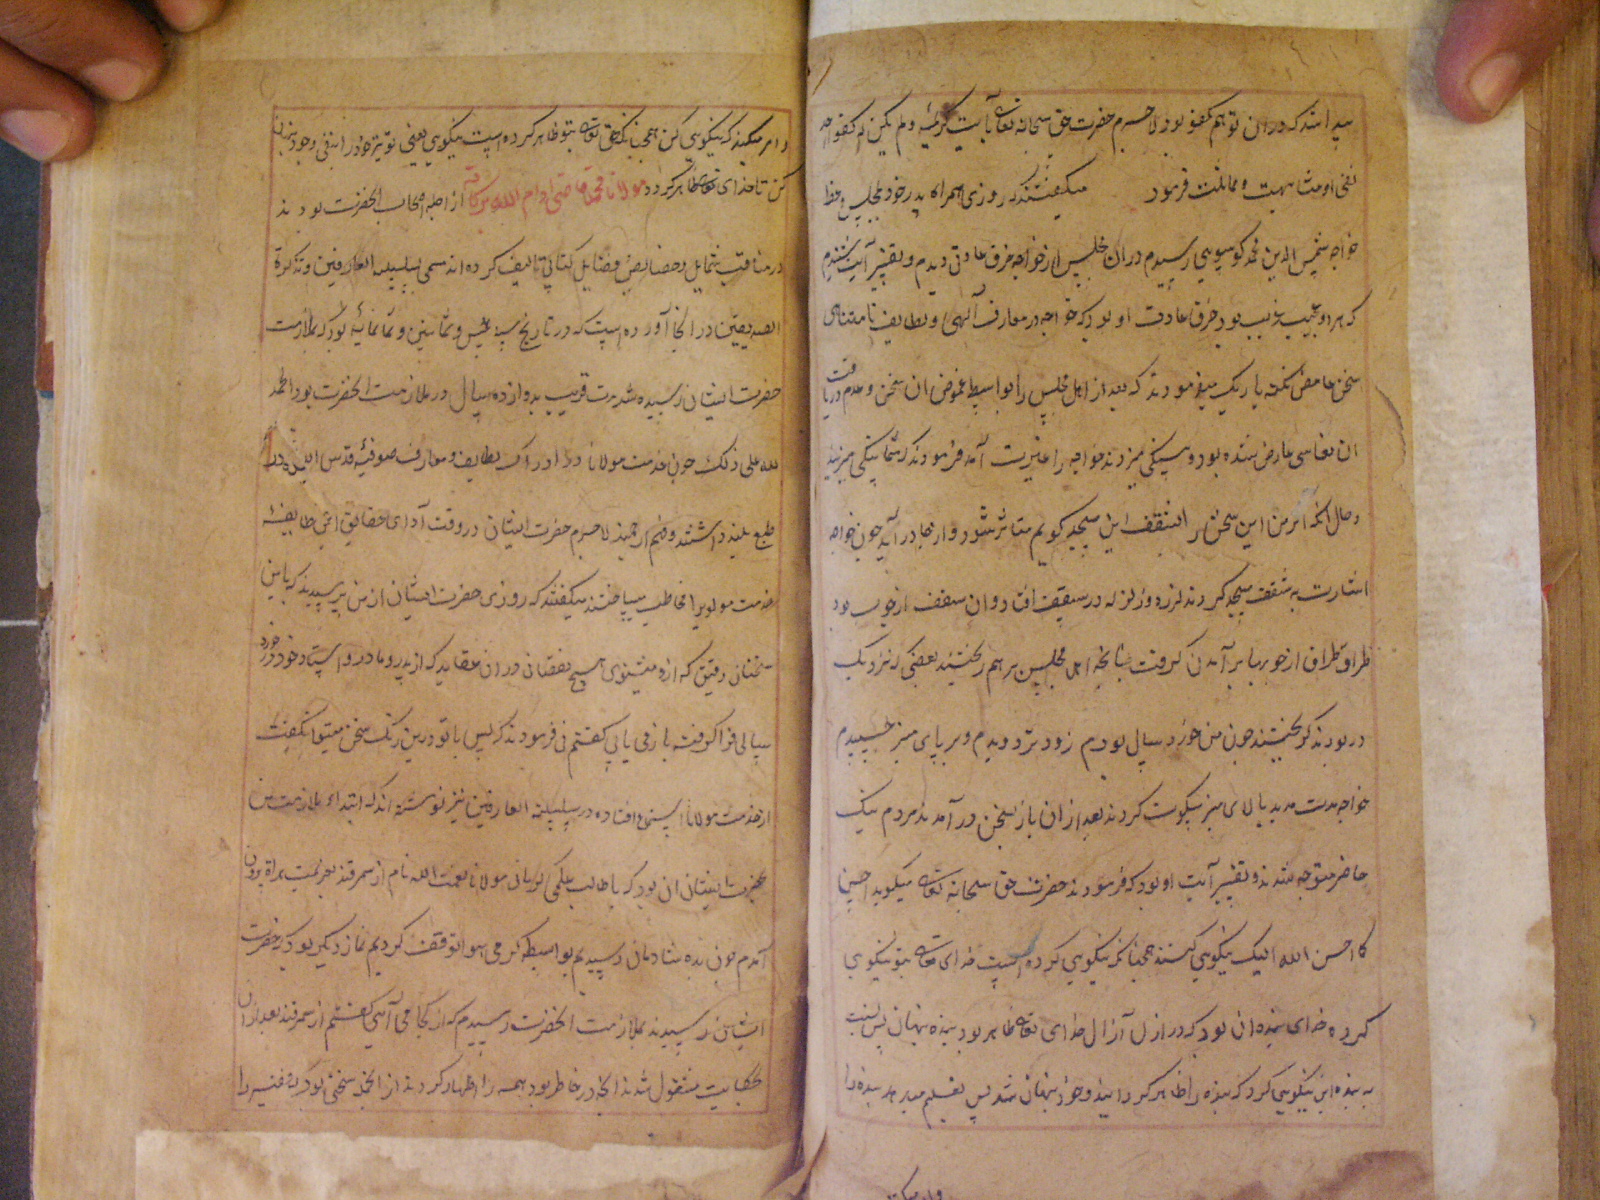 پیدا شد که در ان توهم کفو بود لاجرم حضرت حق سبحانه تعالی بآیت کریمه ولم یکن له کفوا احد
نفی او مشابهت و مماثلت فرمود میگفتند که روزی همراه پدر خود بمجلس وعظ
خواجه شمس الدین محمد کوسوی رسیدم در ان مجلس از خواجه خرق عادتی دیدم و تفسیر آیت شنیدم
که هر دو عجیب غریب بود خرق عادت او بود که خواجه در معارف آلهی و لطایف نامتناهی
سخن غامض نکته باریک میفرمودند که بعد از اهل مجلس را بواسطه غموض ان سخن و عدم دریافت
ان نعاسی عارض شده بود و پینکی میزدند خواجه را غیرت آمد فرمودند که شما پینکی میزنید
و حال انکه اگر من این سخن را بسقف این مسجد گویم متاثر شود و از جا در آید چون خواجه
اشارت به سقف مسجد کردند لرزه و زلزله در سقف افتاد و ان سقف از چوب بود
طراق طراق از چوبها بر آمدن گرفت چنانچه اهل مجلس بر هم ریختند بعضی که نزدیک
در بودند گریختند چون من خورد سال بودم زود تر دویدم و بر پای منبر چسپیدم
خواجه مدت مدید بالای منبر سکوت کردند بعد از ان باز بسخن در آمدند مردم نیک
حاضر متوجه شدند و تفسیر آیت او بود که فرمودند حضرت حق سبحانه تعالی میگوید احسن
کما احسن الله الیک نیکویی کنند همچنانکه نیکویی کرده است خدای تعالی بتو نیکویی
کرده خدای ببنده ان بود که در ازل آزال خدای تعالی ظاهر بود بنده پنهان پس نسبت
به بنده این نیکویی کرد که بنده را ظاهر گردانید و خود پنهان شد پس تعلیم میدهد بنده را
و امر میکند که نیکویی کن همچنانکه حق تعالی بتو ظاهر کرده است نیکویی یعنی تو نیز خود را نفی وجود پنهان
کن تا خدای تعالی ظاهر گردد مولانا محمد قاضی ادام الله برکاته از اجله اصحاب آنحضرت بودند
در مناقب شمایل و خصایص و فضایل کتابی تالیف کرده اند مسمی بسلسلة العارفین و تذکرة
الصدیقین در انجا آورده است که در تاریخ سنه خمس و ثمانین و ثمانمائه بود که بملازمت
حضرت ایشان رسیده شد مدت قریب بدوازده سال در ملازمت آنحضرت بود الحمد
لله علی ذلک چون خدمت مولانا در ادراک لطایف و معارف صوفیه قدس الله
طبع بلند داشتند و فهم ارجمند لاجرم حضرت ایشان در وقت آدای حقایق این طایفه
خدمت مولویرا مخاطب میساختند میگفتند که روزی حضرت ایشان از من پرسیدند که باین
سخنان دقیق که از ما میشنوی هیچ نقصانی در ان عقاید که از پدر و مادر و استاد خود در خورد
سالی فرا گرفته باز می یابی گفتم نی فرمودند که پس با تو درین رنگ سخن میتوان گفت
از خدمت مولانا استماع افتاده در سلسلة العارفین نیز نوشته اند که ابتداء ملازمت من
بحضرت ایشان ان بود که با طالب علمی مولانا نعمت الله نام از سمرقند بعزیمت هراة برون
آمدم چون بده شادمان رسیدیم بواسطه گرمی هوا توقف کردیم نماز دیگر بود که حضرت
ایشان رسیدند بملازمت آنحضرت رسیدم که از کجا می آئی گفتم از سمرقند بعد از ان
بحکایت مشغول شدند انچه در خاطر بود همه را اظهار کردند از انجمله سخنی بود که فقیر را